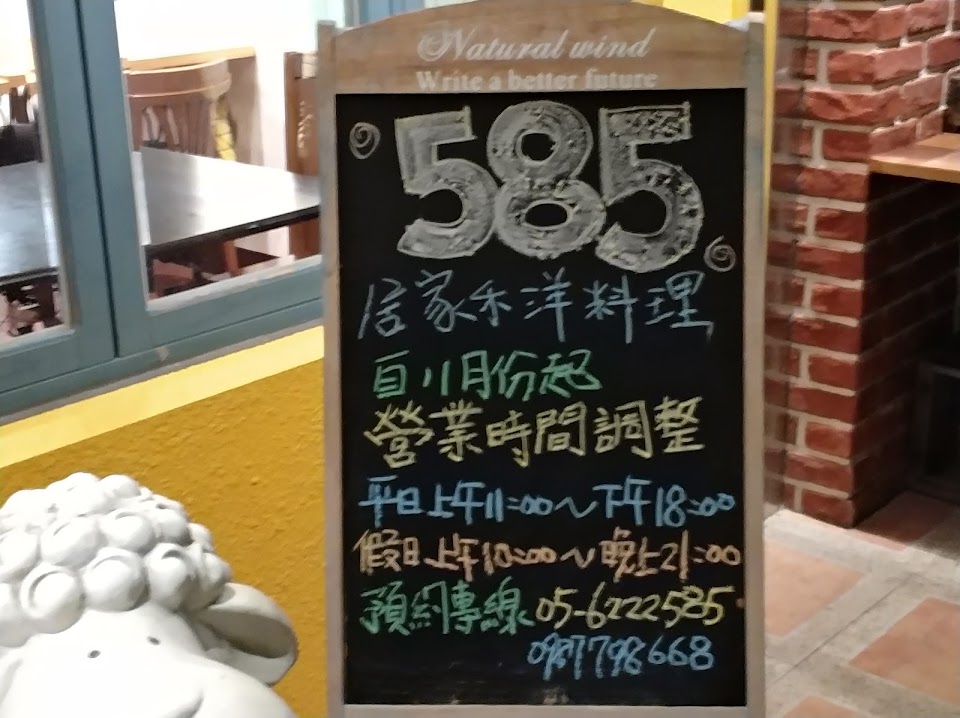 Natural wind
Write a better future
585
居家禾洋料理
自11月份起
營業時間調整
平日上午11:00~下午18:00
假日上午10:00~晚上21:00
預約專線 05-6222585
0987798668